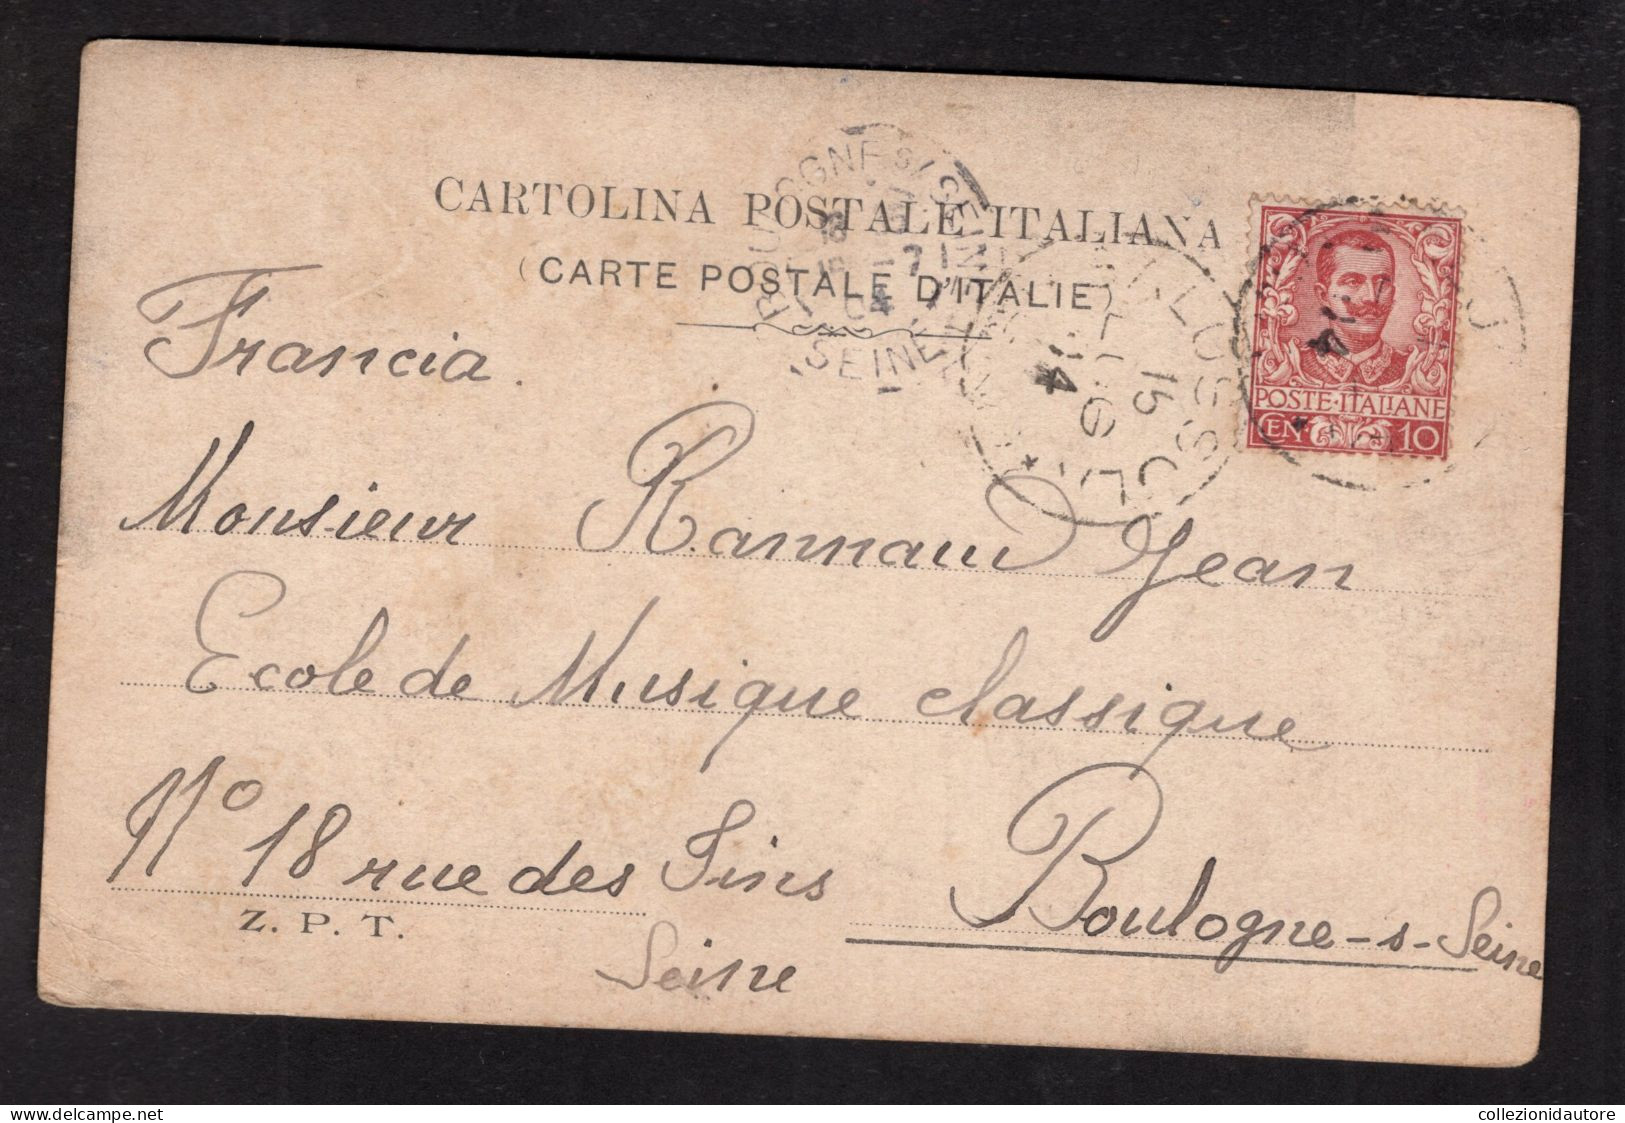 CARTOLINA POSTALE ITALIANA
(CARTE POSTALE D'ITALIE)
BOULOGNE S/ SEINE
16
-7
04
SEINE
15 LUG
14
POSTE·ITALIANE
CEN· 10
Francia.
Monsieur Rannaud Jean
Ecole de Musique classique
No 18 rue des Fins Boulogne-s-Seine
Z. P. T.
Seine
collezionidautore